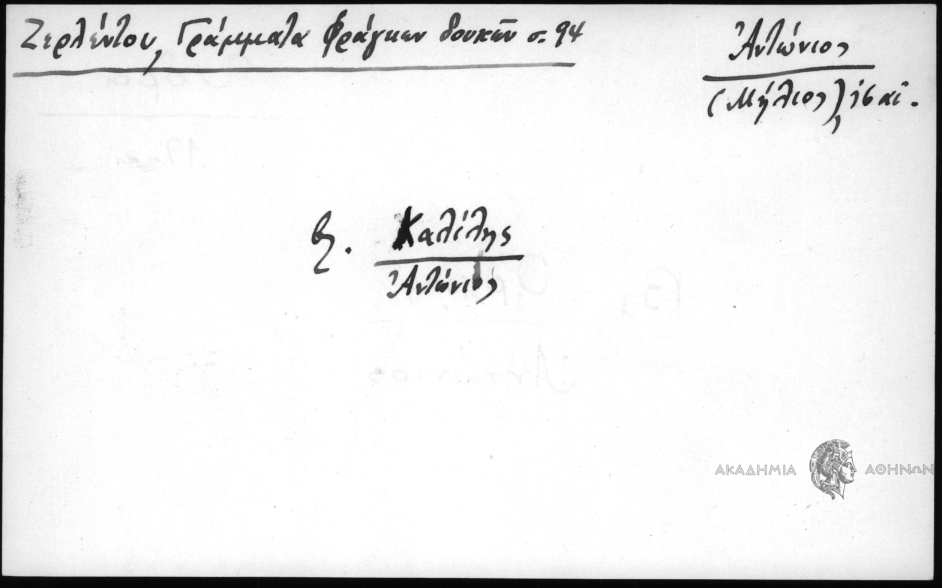 Ζερλέντου, Γράμματα Φράγκων δουκῶν σ. 94
Ἀντώνιος
(Μήλιος), ις αἰ.
β. Καλέλης
Ἀντώνιος
ΑΚΑΔΗΜΙΑ ΑΘΗΝΩΝ